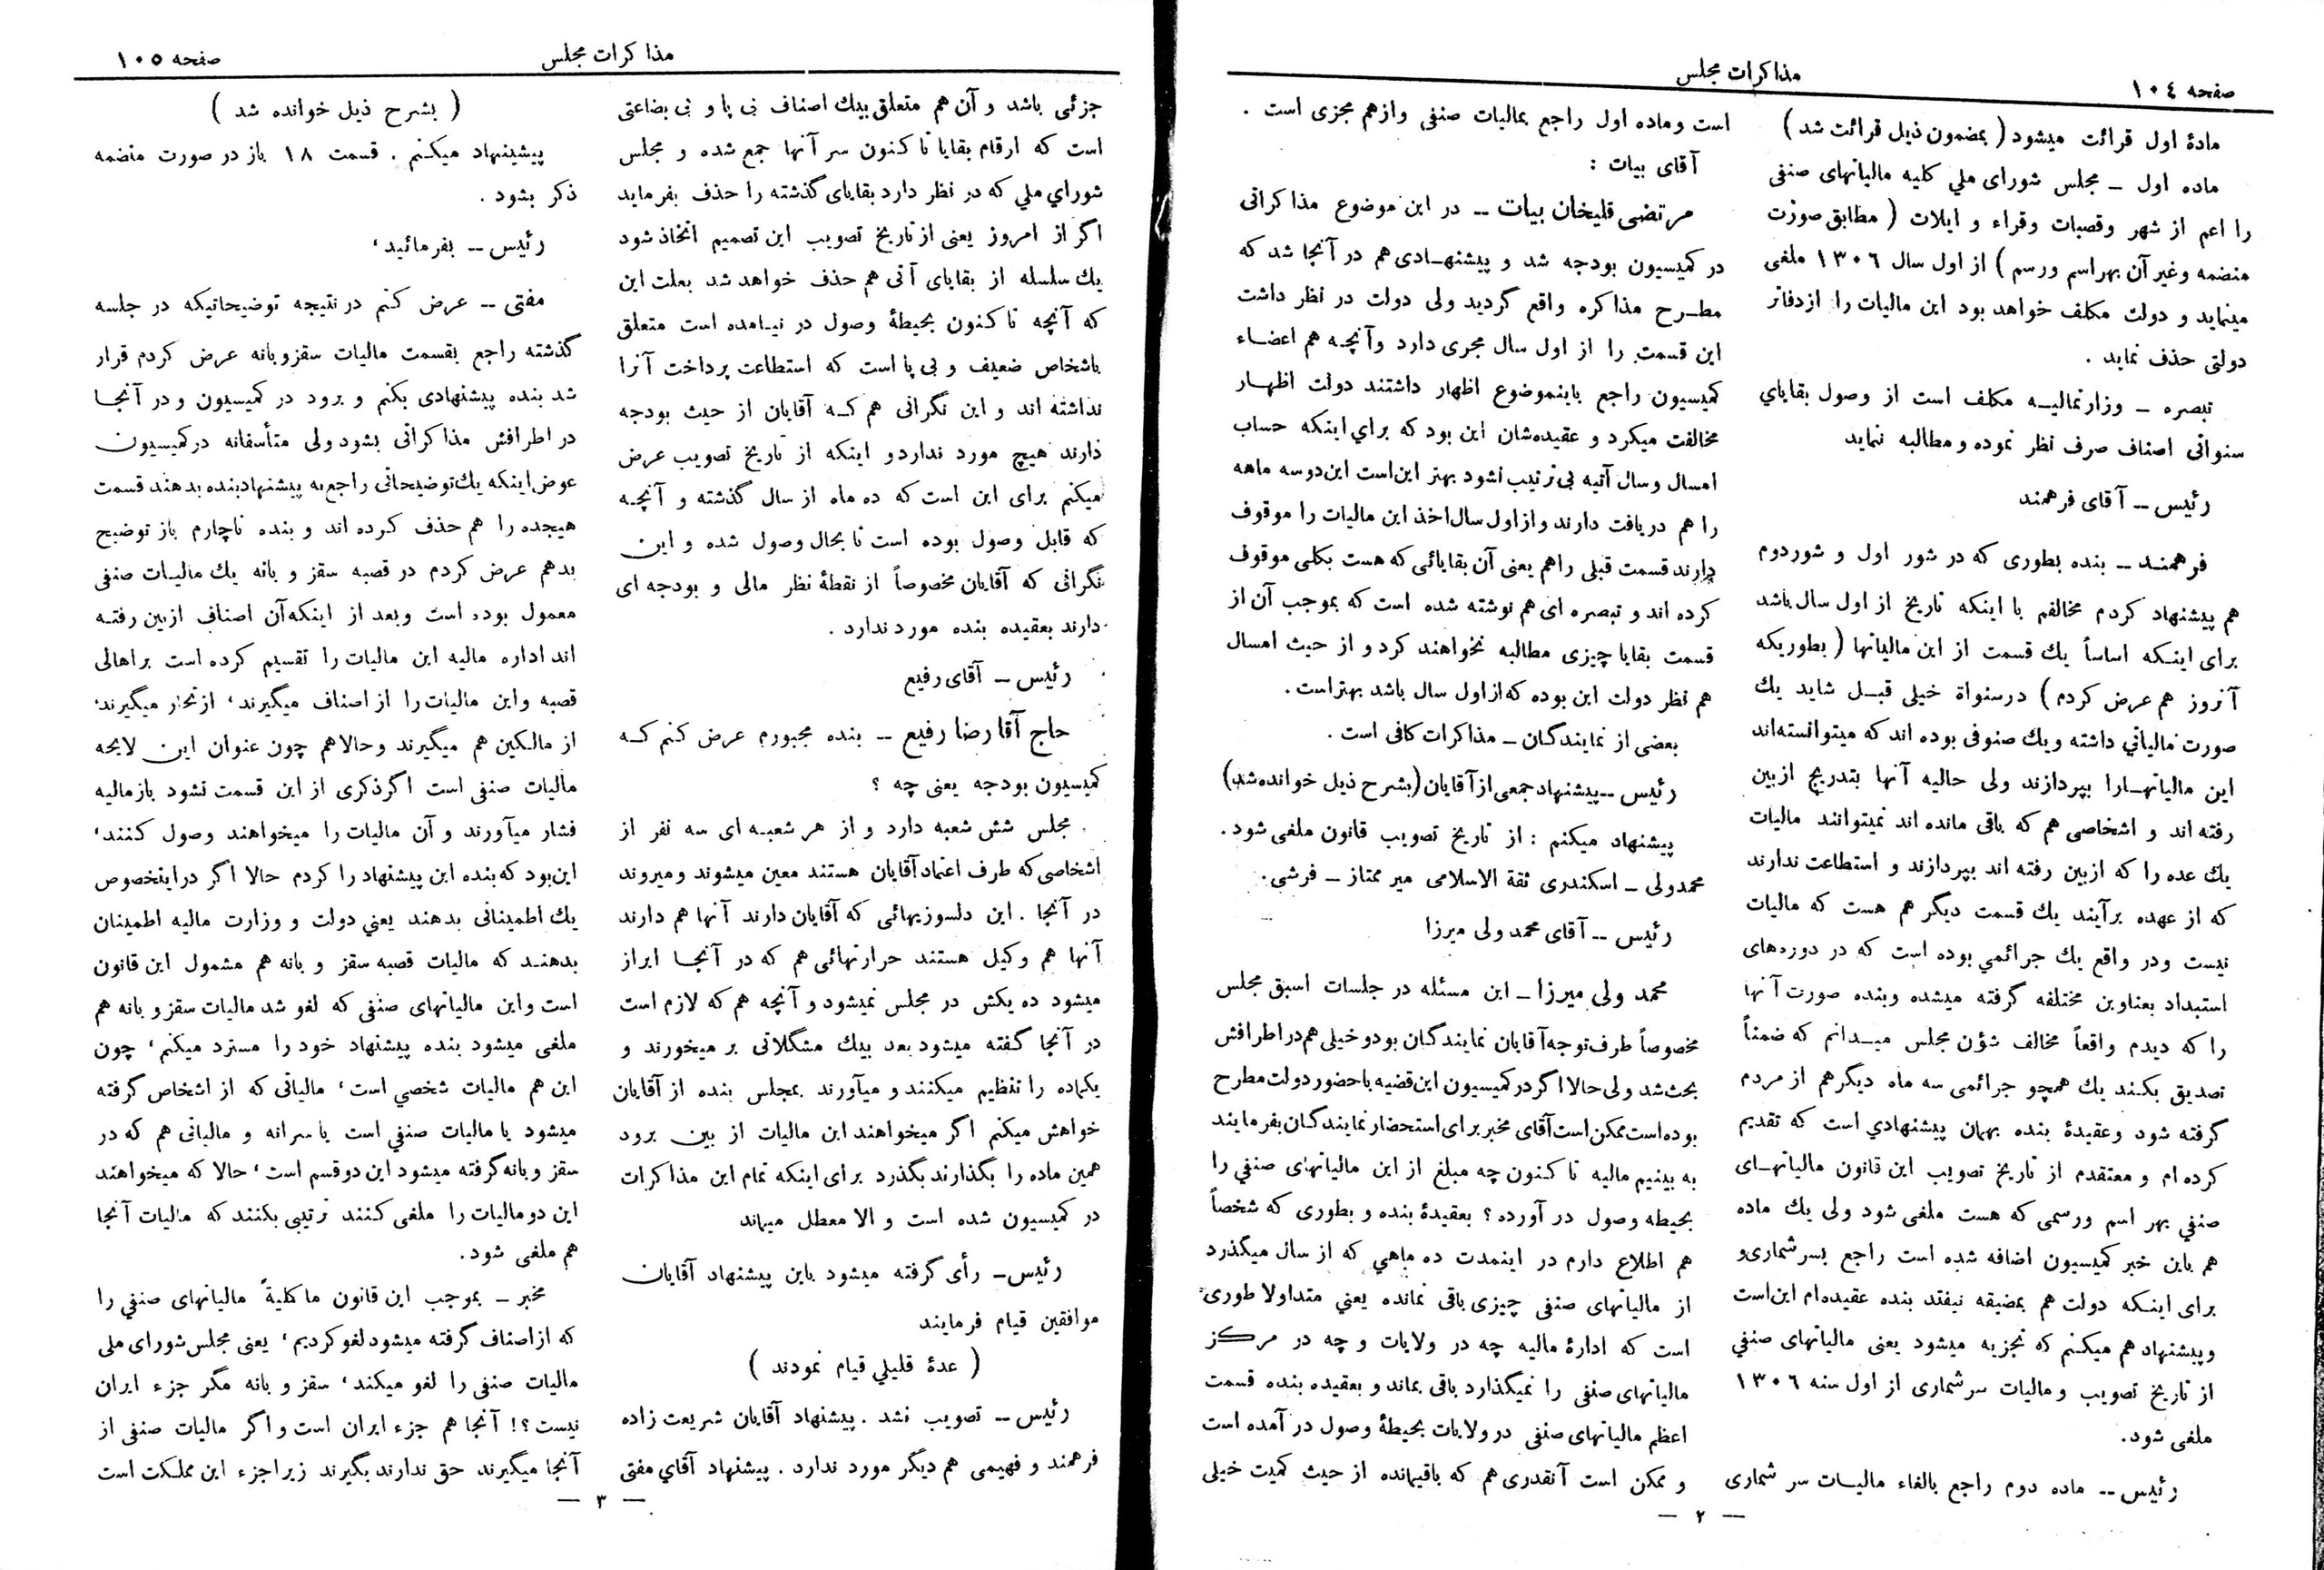 صفحه ۱۰٤
مذاکرات مجلس
مادهٔ اول قرائت میشود ( بمضمون ذیل قرائت شد )
ماده اول ــ مجلس شورای ملي کلیه مالیاتهای صنفی
را اعم از شهر وقصبات وقراء و ایلات ( مطابق صورت
منضمه وغیر آن بهراسم ورسم ) از اول سال ۱۳۰٦ ملغی
مینماید و دولت مکلف خواهد بود این مالیات را ازدفاتر
دولتی حذف نماید .
تبصره ــ وزارتمالیـه مکلف است از وصول بقایاي
سنواتی اصناف صرف نظر نموده ومطالبه ننماید
رئیس ــ آقای فرهمند
فرهمنـد ــ بنده بطوری که در شور اول و شوردوم
هم پیشنهاد کردم مخالفم با اینکه تاریخ از اول سال باشد
برای اینـکه اساساً یك قسمت از این مالیاتها ( بطوریکه
آنروز هم عرض کردم ) درسنواة خیلی قبـل شاید یك
صورت مالیاتي داشته ویك صنوفی بوده اند که میتوانسته‌اند
این مالیاتهـارا بپردازند ولی حالیه آنها بتدریج ازبین
رفته اند و اشخاصی هم که باقی مانده اند نمیتوانند مالیات
یك عده را که ازبین رفته اند بپردازند و استطاعت ندارند
که از عهده برآیند یك قسمت دیگر هم هست که مالیات
نیست ودر واقع یك جرائمي بوده است که در دوره‌های
استبداد بعناوین مختلفه گرفته میشده وبنده صورت آنها
را که دیدم واقعاً مخالف شؤن مجلس میـدانم که ضمناً
تصدیق بکند یك همچو جرائمی سه ماه دیگرهم از مردم
گرفته شود وعقیدهٔ بنده بهمان پیشنهادي است که تقدیم
کرده ام و معتقدم از تاریخ تصویب این قانون مالیاتهـای
صنفي بهر اسم ورسمی که هست ملغی شود ولی یك ماده
هم باین خبر کمیسیون اضافه شده است راجع بسرشماری‌و
برای اینـکه دولت هم بمضیقه نیفتد بنده عقیده‌ام این‌است
وپیشنهاد هم میکنم که تجزیه میشود یعنی مالیاتهای صنفي
از تاریخ تصویب ومالیات سرشماری از اول سنه ۱۳۰٦
ملغی شود.
رئیس ــ ماده دوم راجع بالغاء مالیـات سر شماری
است وماده اول راجع بمالیات صنفی وازهم مجزی است .
آقای بیات :
مرتضی قلیخان بیات ــ در این موضوع مذاکراتی
در کمیسیون بودجه شد و پیشنهـادی هم در آنجا شد که
مطـرح مذاکره واقع گردید ولی دولت در نظر داشت
این قسمت را از اول سال مجری دارد وآنچـه هم اعضـاء
کمیسیون راجع باینموضوع اظهار داشتند دولت اظهـار
مخالفت میکرد و عقیده‌شان این بود که برای اینکه حساب
امسال وسال آتیه بی‌ترتیب نشود بهتر این‌است این‌دوسه ماهه
را هم دریافت دارند وازاول سال‌اخذ این مالیات را موقوف
دارند قسمت قبلی راهم یعنی آن بقایائی که هست بکلی موقوف
کرده اند و تبصره ای هم نوشته شده است که بموجب آن از
قسمت بقایا چیزی مطالبه نخواهند کرد و از حیث امسال
هم نظر دولت این بوده که از اول سال باشد بهتراست .
بعضی از نمایندگان ــ مذاکرات کافی است .
رئیس ــ پیشنهاد جمعی از آقایان (بشرح ذیل خوانده شد)
پیشنهاد میکنم : از تاریخ تصویب قانون ملغی شود .
محمدولی ــ اسکندری ثقة الاسلامی میر ممتاز ــ فرشی.
رئیس ــ آقای محمد ولی میرزا
محمد ولی میرزا ــ این مسئله در جلسات اسبق مجلس
مخصوصاً طرف‌توجه آقایان نمایندگان بودو خیلی هم‌در اطرافش
بحث شد ولی حالا اگر در کمیسیون این‌قضیه باحضور دولت مطرح
بوده است ممکن است آقای مخبر برای استحضار نمایندگان بفرمایند
به بینیم مالیه تاکنون چه مبلغ از این مالیاتهای صنفي را
بحیطه وصول در آورده؟ بعقیدهٔ بنده و بطوری که شخصاً
هم اطلاع دارم در اینمدت ده ماهي که از سال میگذرد
از مالیاتهای صنفی چیزی باقی نمانده یعني متداولا طوری
است که ادارهٔ مالیه چه در ولایات و چه در مرکز
مالیاتهای صنفی را نمیگذارد باقی بماند و بعقیده بنده قسمت
اعظم مالیاتهای صنفی در ولایات بحیطهٔ وصول در آمده است
و ممکن است آنقدری هم که باقیمانده از حیث کمیت خیلی
ــ ۲ ــ
مذاکرات مجلس
صفحه ۱۰٥
جزئی باشد و آن هم متعلق بیك اصناف بی پا و بی بضاعتی
است که ارقام بقایا تاکنون سر آنها جمع شده و مجلس
شورای ملي که در نظر دارد بقایای گذشته را حذف بفرماید
اگر از امروز یعنی از تاریخ تصویب این تصمیم اتخاذ شود
یك سلسله از بقایای آتی هم حذف خواهد شد بعلت این
که آنچه تاکنون بحیطهٔ وصول در نیـامده است متعلق
باشخاص ضعیف و بی پا است که استطاعت پرداخت آنرا
نداشته اند و این نگرانی هم کـه آقایان از حیث بودجه
دارند هیچ مورد ندارد و اینکه از تاریخ تصویب عرض
میکنم برای این است که ده ماه از سال گذشته و آنچـه
که قابل وصول بوده است تا بحال وصول شده و این
نگرانی که آقایان مخصوصاً از نقطهٔ نظر مالی و بودجه ای
دارند بعقیده بنده مورد ندارد .
رئیس ــ آقای رفیع
حاج آقا رضا رفیع ــ بنده مجبورم عرض کنم کـه
کمیسیون بودجه یعنی چه ؟
مجلس شش شعبه دارد و از هر شعبـه ای سه نفر از
اشخاصی که طرف اعتماد آقایان هستند معین میشوند ومیروند
در آنجا . این دلسوزیهائی که آقایان دارند آنها هم دارند
آنها هم وکیل هستند حرارتهائی هم که در آنجـا ابراز
میشود ده یکش در مجلس نمیشود و آنچه هم که لازم است
در آنجا گفته میشود بعد بیك مشگلاتی بر میخورند و
یکماده را تنظیم میکنند و میآورند بمجلس بنده از آقایان
خواهش میکنم اگر میخواهند این مالیات از بین برود
همین ماده را بگذارند بگذرد برای اینکه تمام این مذاکرات
در کمیسیون شده است و الا معطل میماند
رئیس ــ رأی گرفته میشود باین پیشنهاد آقایان
موافقین قیام فرمایند
( عدهٔ قلیلي قیام نمودند )
رئیس ــ تصویب نشد . پیشنهاد آقایان شریعت زاده
فرهمند و فهیمی هم دیگر مورد ندارد . پیشنهاد آقاي مفتی
( بشرح ذیل خوانده شد )
پیشینهاد میکـنم . قسمت ۱۸ باز در صورت منضمه
ذکر بشود .
رئیس ــ بفرمائید،
مفتی ــ عرض کنم در نتیجه توضیحاتیکه در جلسه
گذشته راجع بقسمت مالیات سقزوبانه عرض کردم قرار
شد بنده پیشنهادی بکنم و برود در کمیسیون و در آنجـا
در اطرافش مذاکراتی بشود ولی متأسفانه در کمیسیون
عوض اینکه یك توضیحاتی راجع به پیشنهاد بنده بدهند قسمت
هیجده را هم حذف کرده اند و بنده ناچارم باز توضیح
بدهم عرض کردم در قصبه سقز و بانه یك مالیـات صنفی
معمول بوده است وبعد از اینکه آن اصناف ازبین رفتـه
اند اداره مالیه این مالیات را تقسیم کرده است براهالی
قصبه واین مالیات را از اصناف میگیرند، ازتجار میگیرند،
از مالـکین هم میگیرند وحالاهم چون عنوان این لایحه
مالیات صنفی است اگرذکری از این قسمت نشود باز مالیه
فشار میآورند و آن مالیات را میخواهند وصول کنند،
این‌بود که بنده این پیشنهاد را کردم حالا اگر دراینخصوص
یك اطمینانی بدهند یعني دولت و وزارت مالیه اطمینان
بدهنـد که مالیات قصبه سقز و بانه هم مشمول این قانون
است واین مالیاتهای صنفی که لغو شد مالیات سقز و بانه هم
ملغی میشود بنده پیشنهاد خود را مسترد میکنم، چون
این هم مالیات شخصي است، مالیاتی که از اشخاص گرفته
میشود یا مالیات صنفي است یا سرانه و مالیاتی هم که در
سقز و بانه گرفته میشود این دوقسم است، حالا که میخواهند
این دومالیات را ملغی کنند ترتیبی بکنند که مالیات آنجا
هم ملغی شود.
مخبر ــ بموجب این قانون ما کلیةً مالیاتهای صنفي را
که از اصناف گرفته میشود لغو کردیم، یعنی مجلس شورای ملی
مالیات صنفی را لغو میکند، سقز و بانه مگر جزء ایران
نیست؟! آنجا هم جزء ایران است و اگر مالیات صنفی از
آنجا میگیرند حق ندارند بگیرند زیرا جزء این مملکت است
ــ ۳ ــ